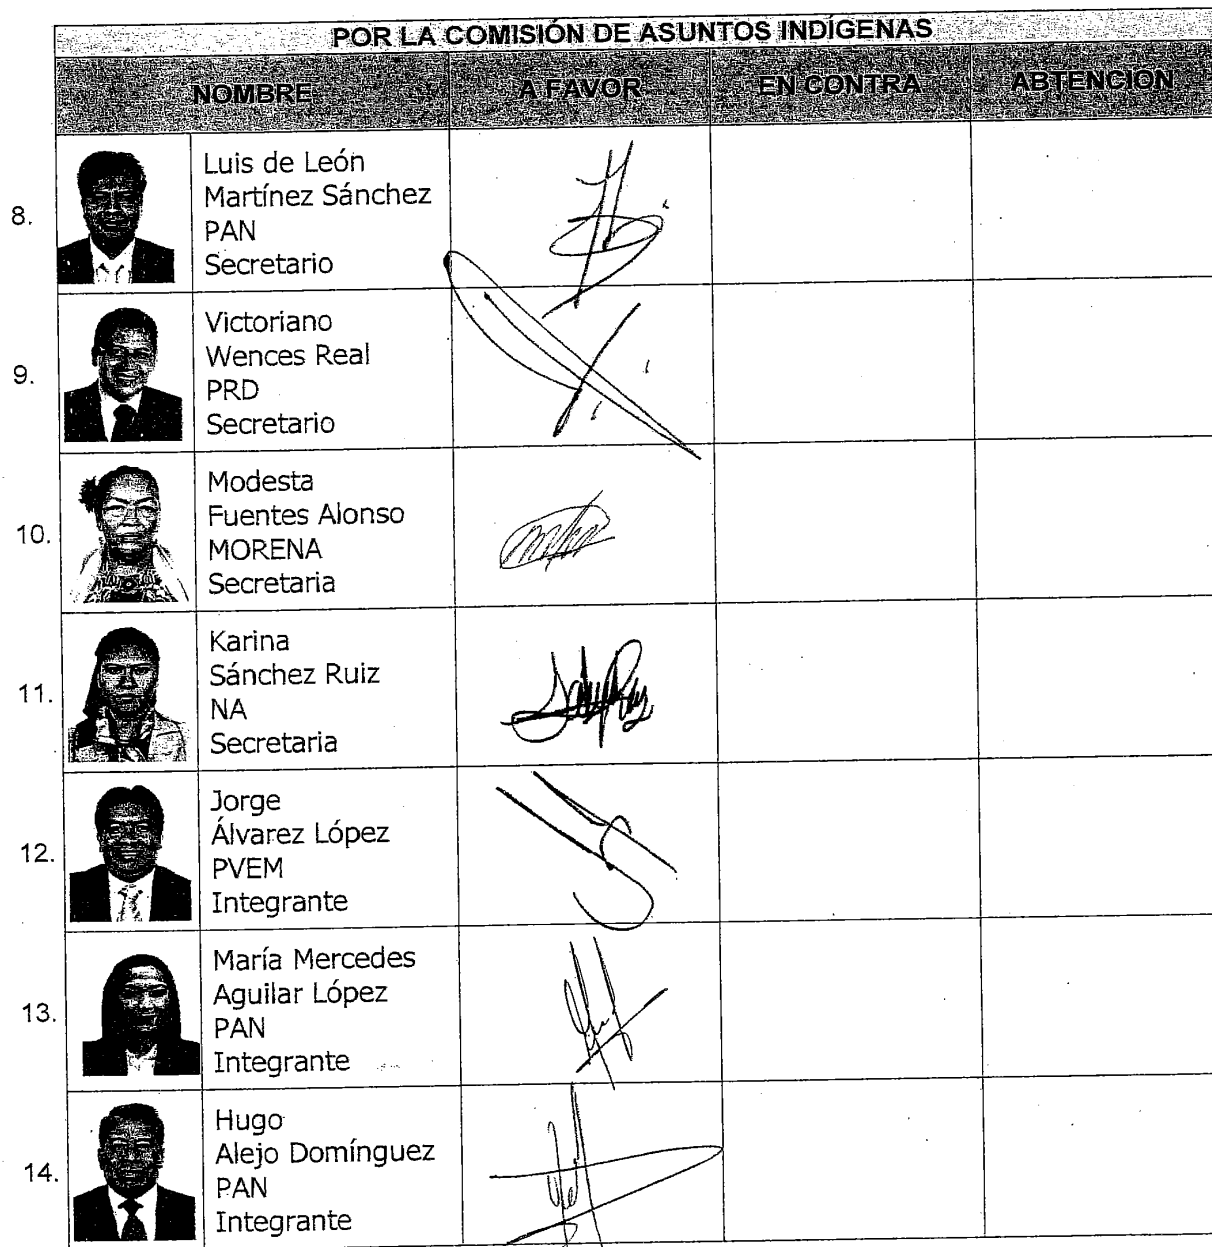 POR LA COMISIÓN DE ASUNTOS INDÍGENAS
NOMBRE A FAVOR EN CONTRA ABTENCIÓN
8.
Luis de León
Martínez Sánchez
PAN
Secretario
9.
Victoriano
Wences Real
PRD
Secretario
10.
Modesta
Fuentes Alonso
MORENA
Secretaria
11.
Karina
Sánchez Ruiz
NA
Secretaria
12.
Jorge
Álvarez López
PVEM
Integrante
13.
María Mercedes
Aguilar López
PAN
Integrante
14.
Hugo
Alejo Domínguez
PAN
Integrante